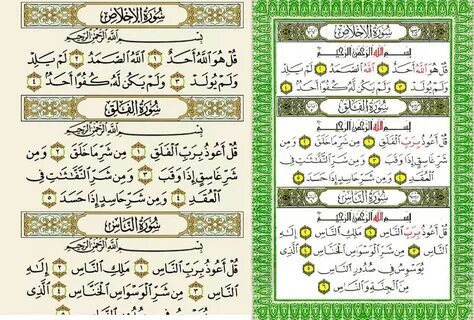 سورة الإخلاص
بِسْمِ اللَّهِ الرَّحْمَٰنِ الرَّحِيمِ
قُلْ هُوَ اللَّهُ أَحَدٌ ١ اللَّهُ الصَّمَدُ ٢ لَمْ يَلِدْ
وَلَمْ يُولَدْ ٣ وَلَمْ يَكُن لَّهُ كُفُوًا أَحَدٌ ٤
سورة الفلق
بِسْمِ اللَّهِ الرَّحْمَٰنِ الرَّحِيمِ
قُلْ أَعُوذُ بِرَبِّ الْفَلَقِ ١ مِن شَرِّ مَا خَلَقَ ٢ وَمِن
شَرِّ غَاسِقٍ إِذَا وَقَبَ ٣ وَمِن شَرِّ النَّفَّاثَاتِ فِي
الْعُقَدِ ٤ وَمِن شَرِّ حَاسِدٍ إِذَا حَسَدَ ٥
سورة الناس
بِسْمِ اللَّهِ الرَّحْمَٰنِ الرَّحِيمِ
قُلْ أَعُوذُ بِرَبِّ النَّاسِ ١ مَلِكِ النَّاسِ ٢ إِلَٰهِ
النَّاسِ ٣ مِن شَرِّ الْوَسْوَاسِ الْخَنَّاسِ ٤ الَّذِي
سورة الإخلاص
بِسْمِ اللَّهِ الرَّحْمَٰنِ الرَّحِيمِ
قُلْ هُوَ اللَّهُ أَحَدٌ ١ اللَّهُ الصَّمَدُ ٢ لَمْ يَلِدْ
وَلَمْ يُولَدْ ٣ وَلَمْ يَكُن لَّهُ كُفُوًا أَحَدٌ ٤
سورة الفلق
بِسْمِ اللَّهِ الرَّحْمَٰنِ الرَّحِيمِ
قُلْ أَعُوذُ بِرَبِّ الْفَلَقِ ١ مِن شَرِّ مَا خَلَقَ ٢ وَمِن
شَرِّ غَاسِقٍ إِذَا وَقَبَ ٣ وَمِن شَرِّ النَّفَّاثَاتِ فِي
الْعُقَدِ ٤ وَمِن شَرِّ حَاسِدٍ إِذَا حَسَدَ ٥
سورة الناس
بِسْمِ اللَّهِ الرَّحْمَٰنِ الرَّحِيمِ
قُلْ أَعُوذُ بِرَبِّ النَّاسِ ١ مَلِكِ النَّاسِ ٢ إِلَٰهِ
النَّاسِ ٣ مِن شَرِّ الْوَسْوَاسِ الْخَنَّاسِ ٤ الَّذِي
يُوَسْوِسُ فِي صُدُورِ النَّاسِ ٥
مِنَ الْجِنَّةِ وَالنَّاسِ ٦